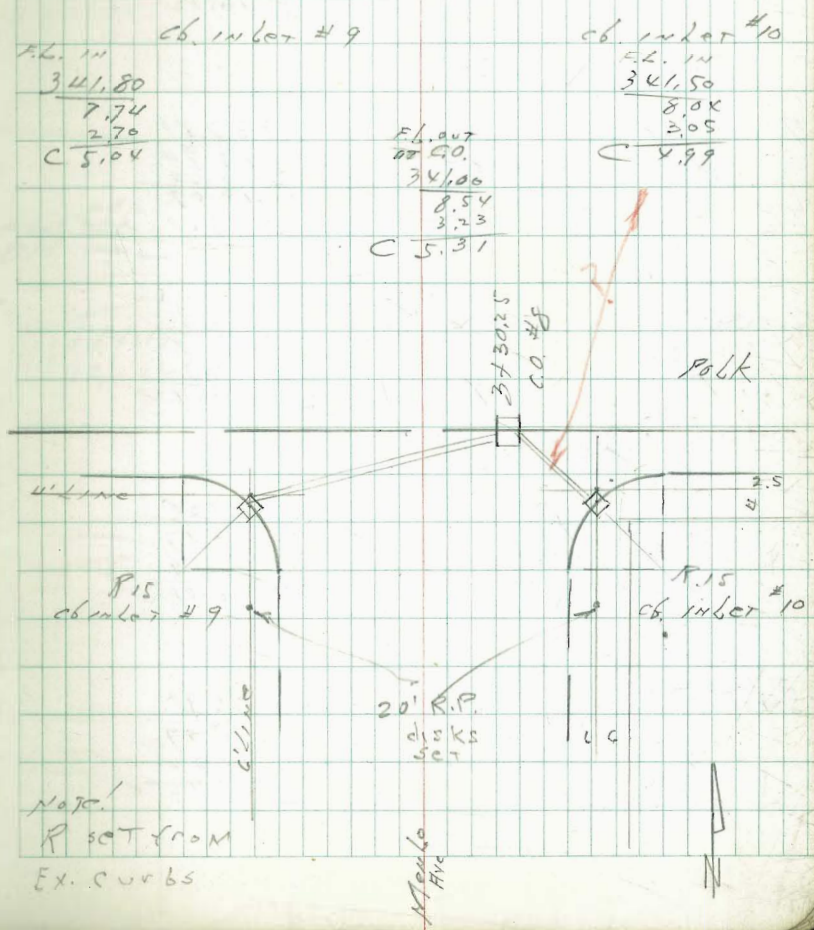 Cb. inLet # 9
F.L. IN
341.80
7.74
2.70
C 5.04
Cb. inLet #10
F.L. IN
341.50
8.04
3.05
C 4.99
F.L. OUT
C.O.
341.00
8.54
3.23
C 5.31
3+30.25
C.O. #8
?
Polk
4' Line
2.5
4
R 15
Cb inLet # 9
R.15
Cb. inLet #10
6' Line
20' R.P.
disks
Set
6
Note!
R set from
Ex. curbs
Menlo
Ave
N